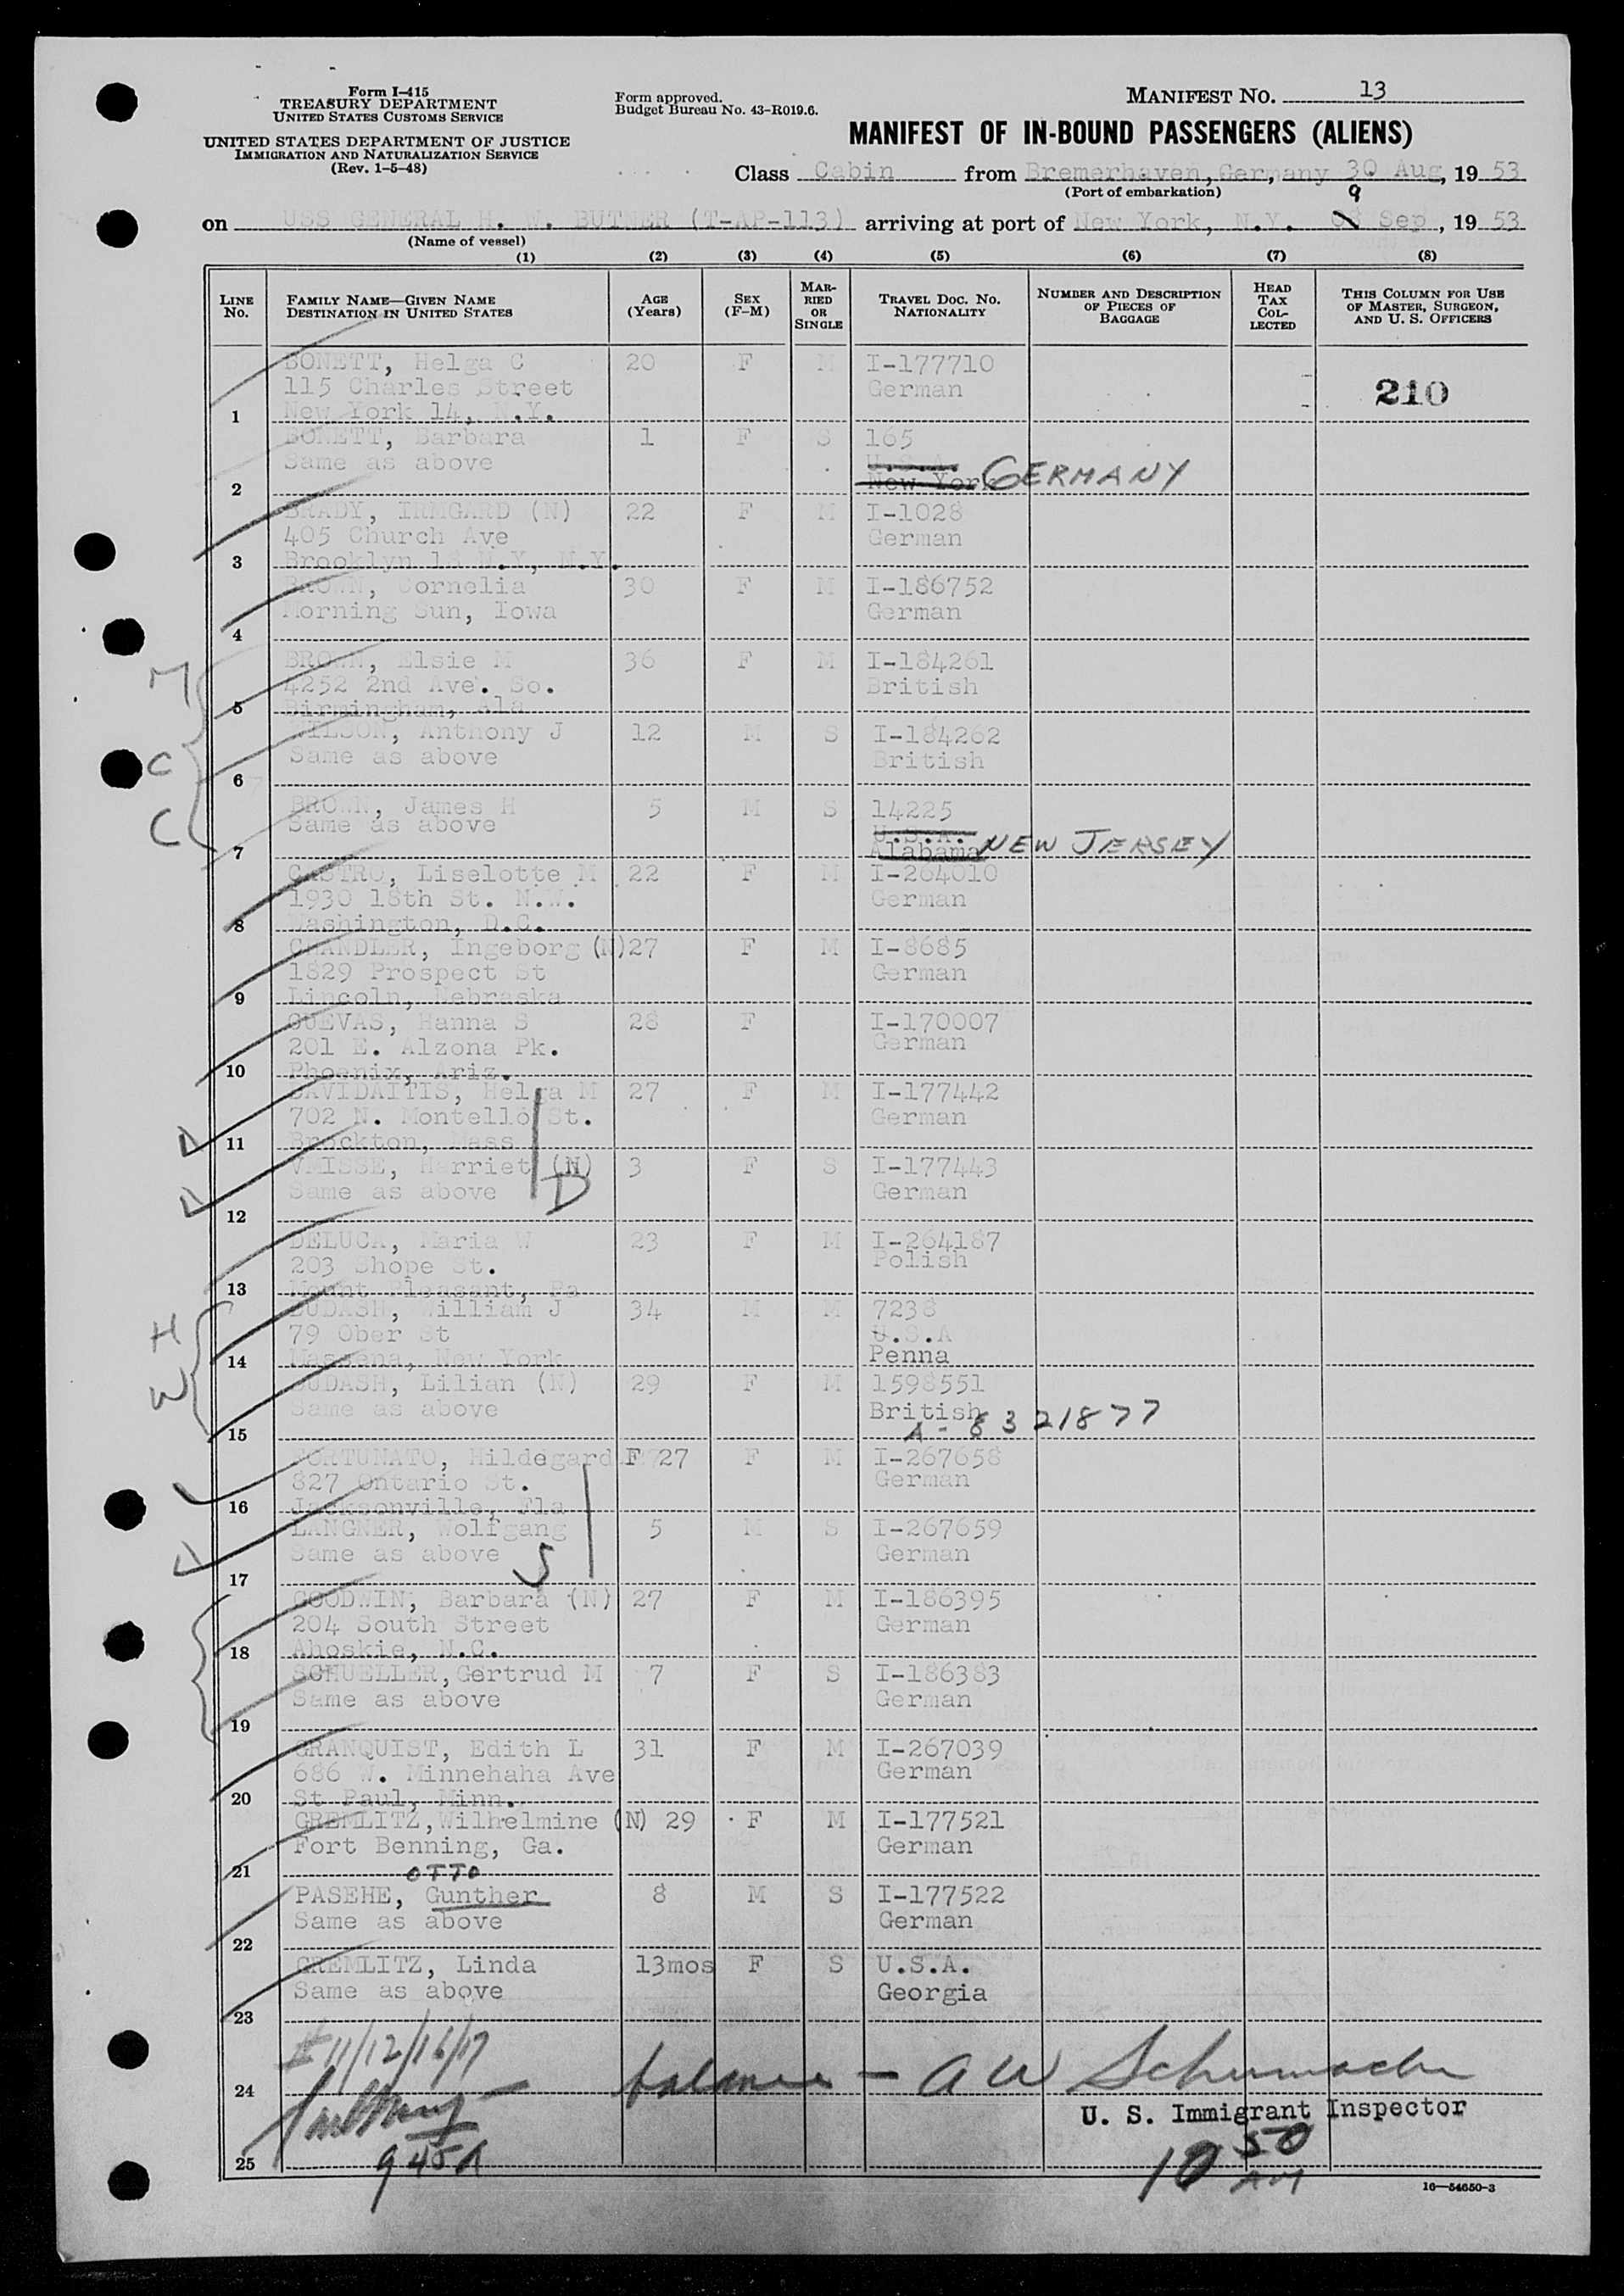 Form I-415
TREASURY DEPARTMENT
UNITED STATES CUSTOMS SERVICE
UNITED STATES DEPARTMENT OF JUSTICE
IMMIGRATION AND NATURALIZATION SERVICE
(Rev. 1-5-48)
Form approved.
Budget Bureau No. 43-R019.6.
MANIFEST NO. 13
MANIFEST OF IN-BOUND PASSENGERS (ALIENS)
Class Cabin from Bremerhaven, Germany 30 Aug, 19 53
(Port of embarkation)
9
on USS GENERAL H. W. BUTNER (T-AP-113) arriving at port of New York, N.Y. 08 Sep, 19 53
(Name of vessel)
(1) (2) (3) (4) (5) (6) (7) (8)
LINE NO.
FAMILY NAME—GIVEN NAME
DESTINATION IN UNITED STATES
AGE (Years)
SEX (F-M)
MARRIED OR SINGLE
TRAVEL DOC. NO. NATIONALITY
NUMBER AND DESCRIPTION OF PIECES OF BAGGAGE
HEAD TAX COLLECTED
THIS COLUMN FOR USE OF MASTER, SURGEON, AND U. S. OFFICERS
BONETT, Helga C 20 F M I-177710
115 Charles Street German 210
1 New York 14, N.Y.
BONETT, Barbara 1 F S 165
Same as above U.S.A.
2 New York GERMANY
BRADY, IRMGARD (N) 22 F M I-1028
405 Church Ave German
3 Brooklyn 18 N.Y, N.Y.
BROWN, Cornelia 30 F M I-186752
Morning Sun, Iowa German
4
BROWN, Elsie M 36 F M I-184261
M 4252 2nd Ave. So. British
5 Birmingham, Ala
WILSON, Anthony J 12 M S I-184262
C Same as above British
6
BROWN, James H 5 M S 14225
C Same as above U.S.A.
7 Alabama NEW JERSEY
CASTRO, Liselotte M 22 F M I-264010
1930 18th St. N.W. German
8 Washington, D.C.
CHANDLER, Ingeborg (N) 27 F M I-8685
1829 Prospect St German
9 Lincoln, Nebraska
CUEVAS, Hanna S 28 F I-170007
201 E. Alzona Pk. German
10 Phoenix, Ariz.
DAVIDAITIS, Helga M 27 F M I-177442
702 N. Montello St. German
11 Brockton, Mass
VEISSE, Harriet (N) 3 F S I-177443
Same as above D German
12
DELUCA, Maria W 23 F M I-264187
203 Shope St. Polish
13 Mount Pleasant, Pa
DUDASH, William J 34 M M 7238
H 79 Ober St U.S.A
14 Massena, New York Penna
W DUDASH, Lilian (N) 29 F M 1598551
Same as above British
15 A- 8321877
FORTUNATO, Hildegard F 27 F M I-267658
827 Ontario St. German
16 Jacksonville, Fla
LANGNER, Wolfgang 5 M S I-267659
Same as above S German
17
GOODWIN, Barbara (N) 27 F M I-186395
204 South Street German
18 Ahoskie, N.C.
SCHUELLER, Gertrud M 7 F S I-186383
Same as above German
19
GRANQUIST, Edith L 31 F M I-267039
686 W. Minnehaha Ave German
20 St Paul, Minn.
GREMLITZ, Wilhelmine (N) 29 F M I-177521
Fort Benning, Ga. German
21 OTTO
PASEHE, Gunther 8 M S I-177522
Same as above German
22
GREMLITZ, Linda 13mos F S U.S.A.
Same as above Georgia
23
# 11/12/16/17
24 balance — A W Schumacher
U. S. Immigrant Inspector
25 945A 10 50 AM
16—54650-3